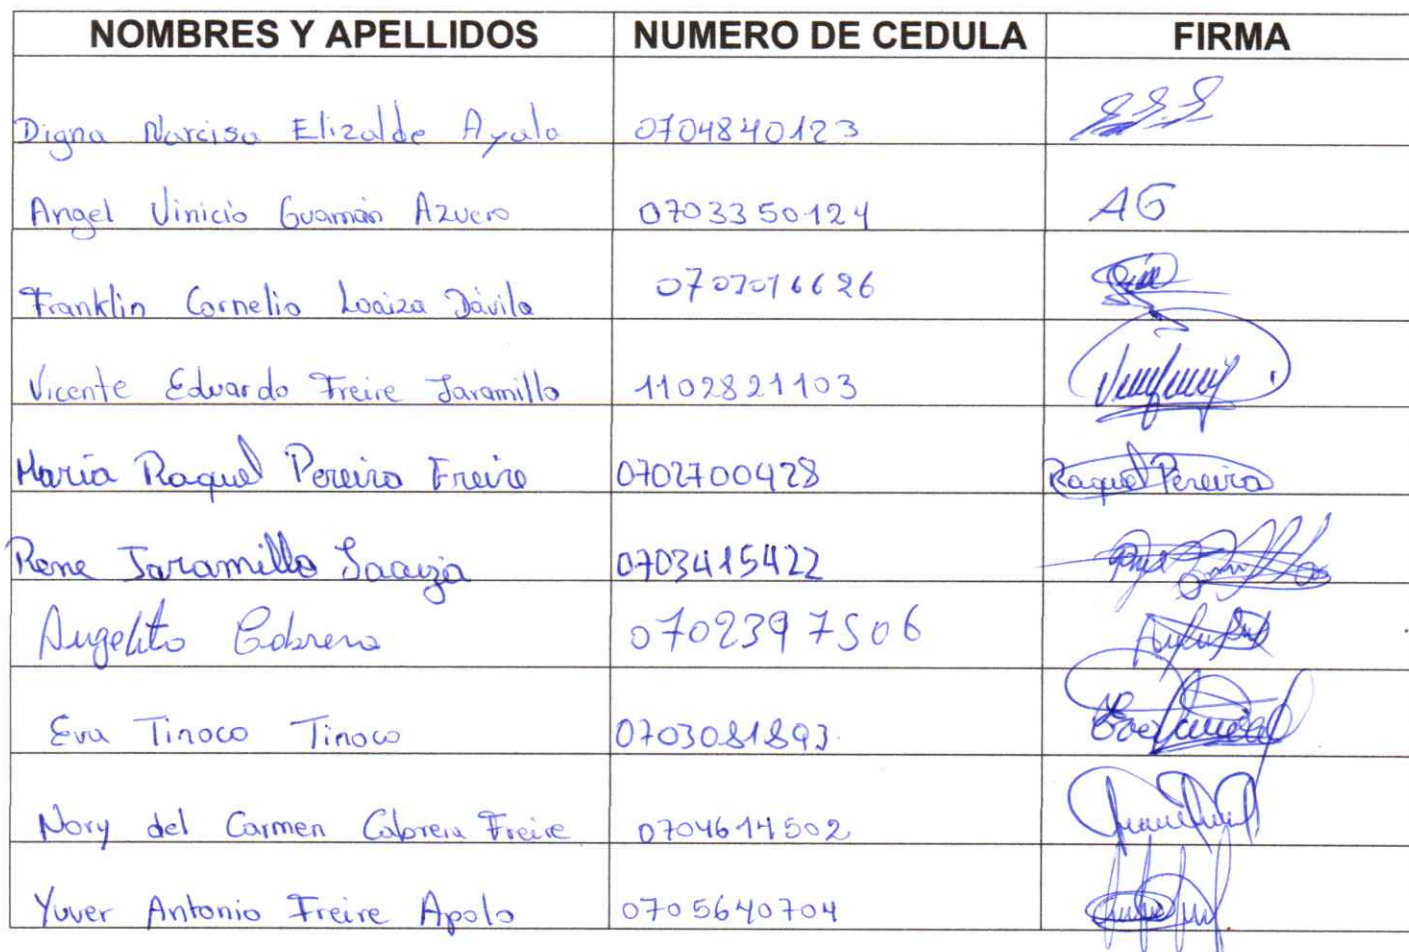 NOMBRES Y APELLIDOS NUMERO DE CEDULA FIRMA
Digna Narcisa Elizalde Ayala 0704840123
Angel Vinicio Guamán Azuero 0703350124 AG
Franklin Cornelio Loaiza Dávila 0707016626
Vicente Eduardo Freire Jaramillo 1102821103
María Raquel Pereira Freire 0702700428 Raquel Pereira
Rene Jaramillo Loaiza 0703415422
Angelito Cabrera 0702397506
Eva Tinoco Tinoco 0703081893
Nory del Carmen Cabrera Freire 0704614502
Yuver Antonio Freire Apolo 0705640704